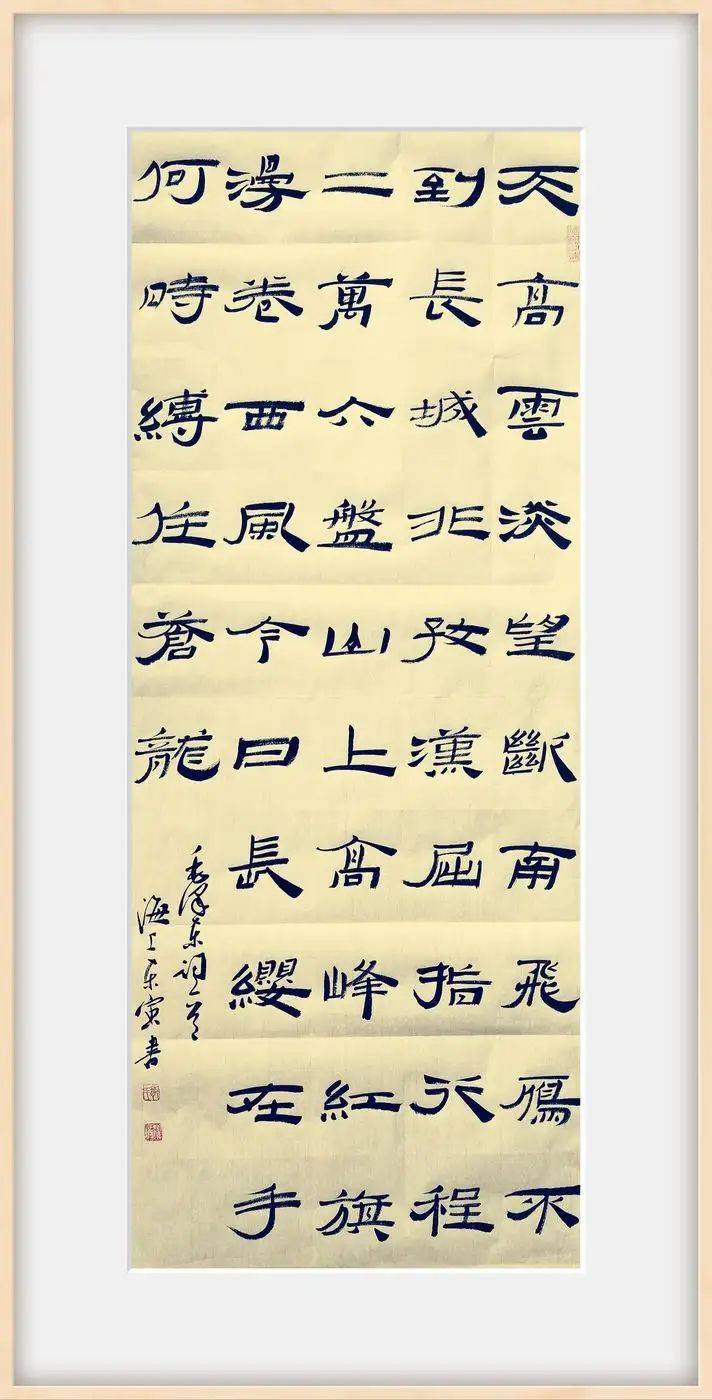 天高雲淡望斷南飛鴈不
到長城非好漢屈指行程
二萬六盤山上高峰紅旗
漫卷西風今日長纓在手
何時縛住蒼龍
毛澤东詞一首
海上东寅書